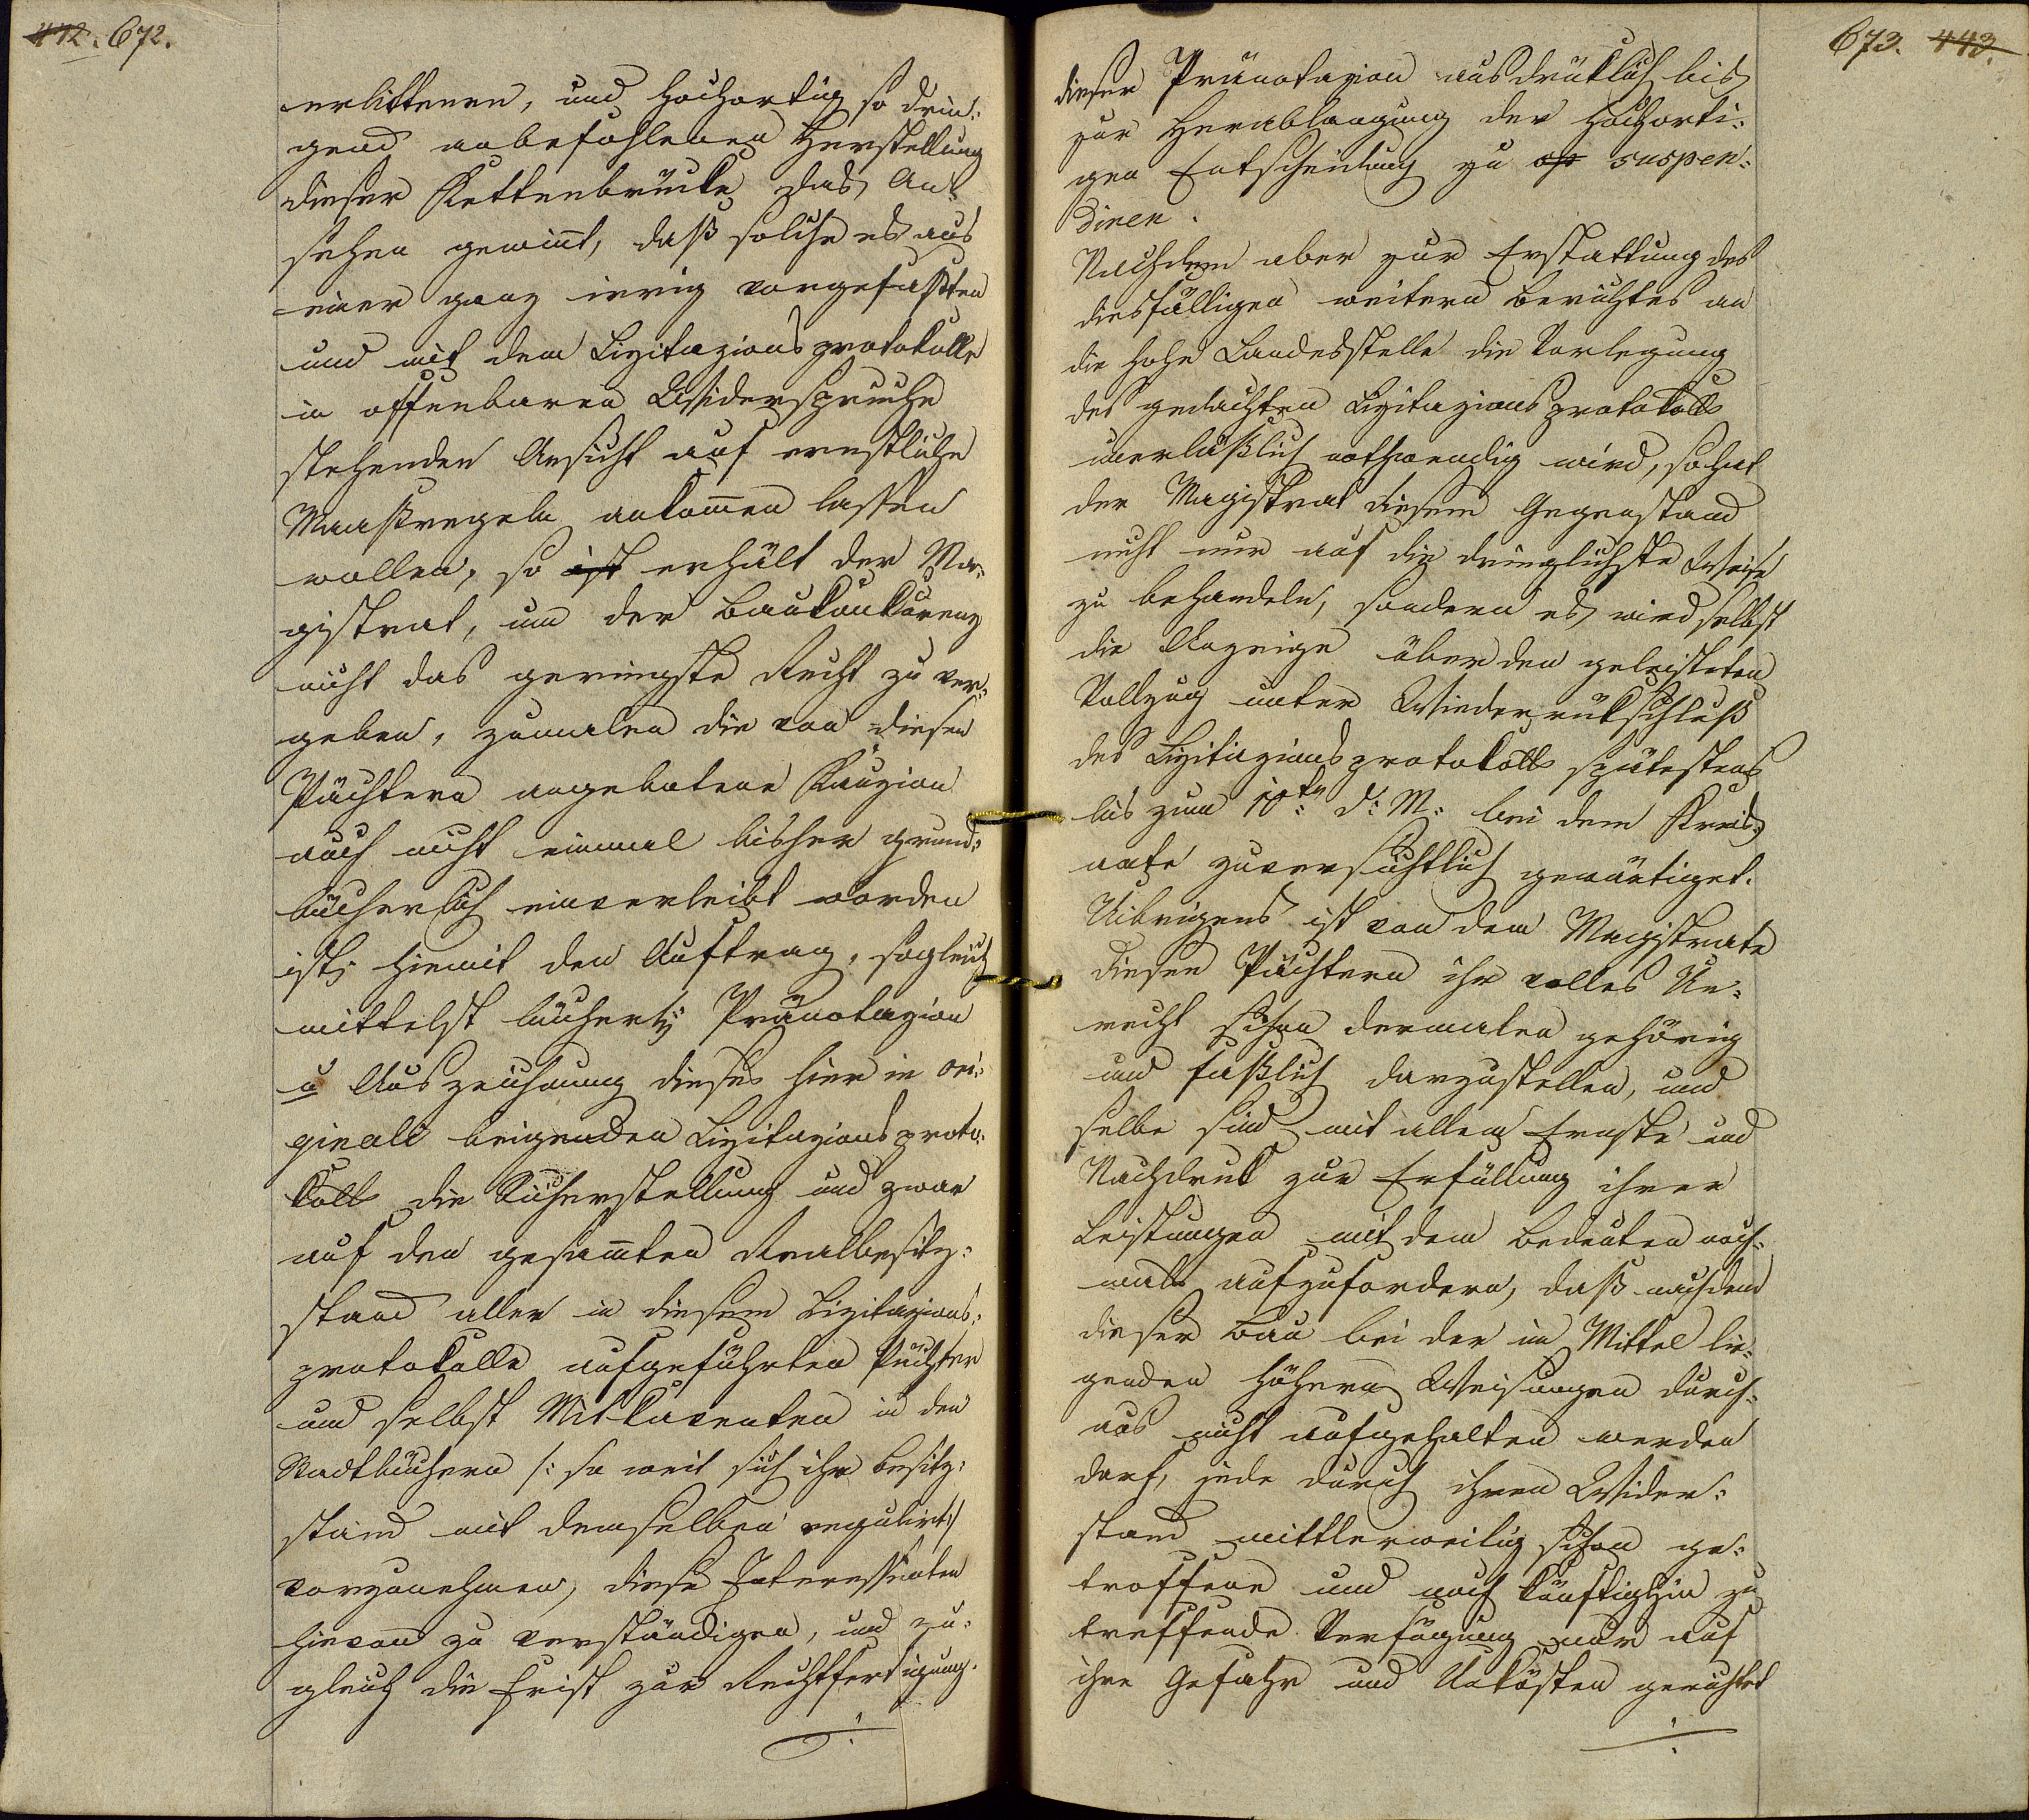 442. 672.
erlittenen, und hochortig so drin-
gend anbefohlenen Herstellung
dieser Kettenbrücke das An-
sehen gewinnt, daß solche es aus
einer ganz irrig vorgefaßten
und mit dem Lizitazionsprotokolle
in offenbaren Widerspruche
stehenden Ansicht auf ernstliche
Maaßregeln ankommen lassen
wollen, so ist erhält der Ma-
gistrat, um der Baukonkurenz
nicht das geringste Recht zu ver-
geben, zumalen die von diesen
Pächtern angebotene Kauzion
auch nicht einmal bisher grund-
bücherlich einverleibt worden
ist, hiemit den Auftrag, sogleich
mittelst bücherl. Pränotazion
u Auszeichnung dieses hier in ori-
ginali beigenden Lizitazionsproto-
kolls die Sicherstellung und zwar
auf den gesammten Realbesitz-
stand aller in diesem Lizitazions-
protokolle aufgeführten Pächter
und selbst Mitkaventen in den
Stadtbüchern /: so weit sich ihr Besitz-
stand mit demselben regulirt :/
vorzunehmen, diese Interessenten
hievon zu verständigen, und zu-
gleich die Frist zur Rechtfertigung
./.
673. 443.
dieser Pränotazion ausdrüklich bis
zur Herablangung der hochorti-
gen Entscheidung zu op suspen-
diren.
Nachdem aber zur Erstattung des
diesfälligen weitern Berichtes an
die hohe Landesstelle die Vorlegung
des gedachten Lizitazionsprotokolls
unerläßlich nothwendig wird, so hat
der Magistrat diesem Gegenstand
nicht nur auf die dringlichste Weise
zu behandeln, sondern es wird selbst
die Anzeige über den geleisteten
Vollzug unter Wiederrükschluß
des Lizitazionsprotokolls spätestens
bis zum 10ten d: M: bei dem Kreis-
amte zuversichtlich gewärtiget.
Uibrigens ist von dem Magistrate
diesen Pächtern ihr volles Un-
recht schon dermalen gehörig
und faßlich darzustellen, und
selbe sind mit allem Ernste und
Nachdruk zur Erfüllung ihrer
Leistungen mit dem Bedeuten noch-
mals aufzufordern, daß nachdem
dieser Bau bei der im Mittel lie-
genden höhern Weisungen durch-
aus nicht aufgehalten werden
darf, jede durch ihren Wider-
stand mittlerweilig schon ge-
troffene und noch künftighin zu
treffende Verfügung nur auf
ihre Gefahr und Unkösten gerichtet
./.